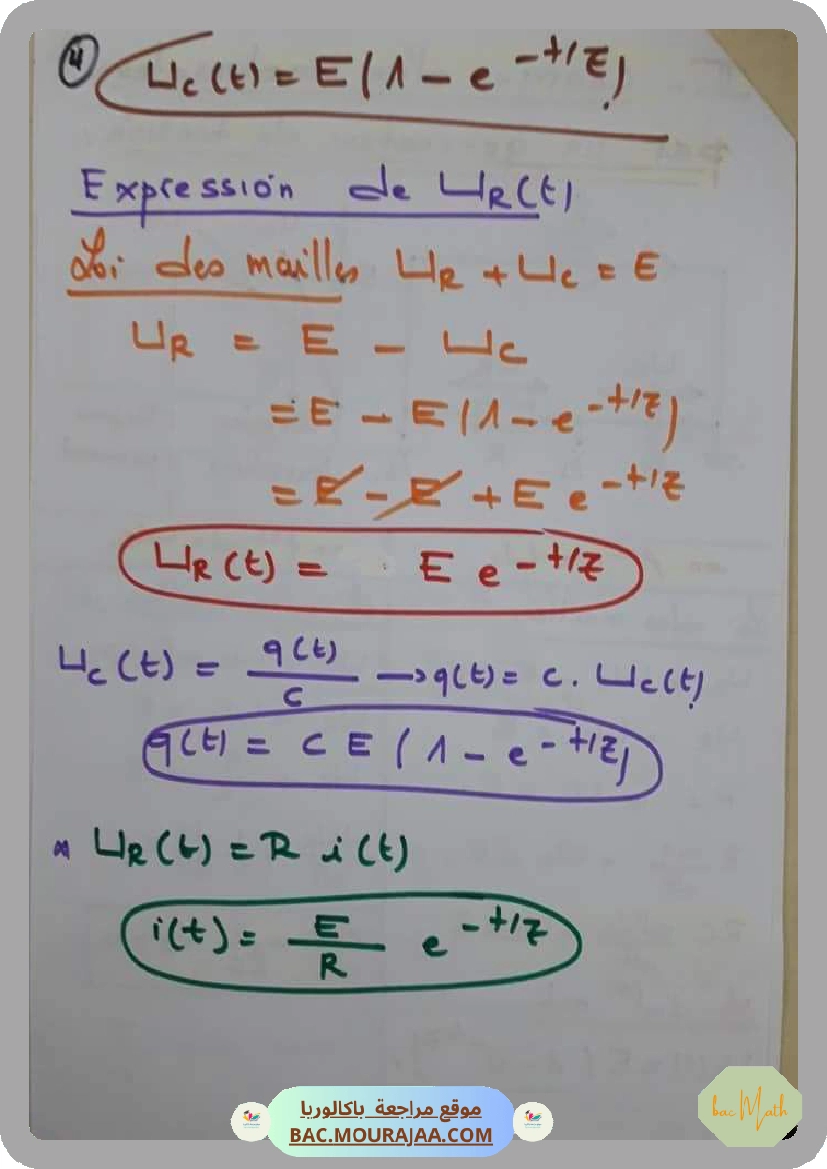 4 Uc(t) = E(1 - e^-t/τ)
Expression de UR(t)
Loi des mailles UR + Uc = E
UR = E - Uc
= E - E(1 - e^-t/τ)
= E - E + E e^-t/τ
UR(t) = E e^-t/τ
Uc(t) = q(t)/C → q(t) = C. Uc(t)
q(t) = C E (1 - e^-t/τ)
* UR(t) = R i(t)
i(t) = E/R e^-t/τ
موقع مراجعة باكالوريا
BAC.MOURAJAA.COM
bac Math